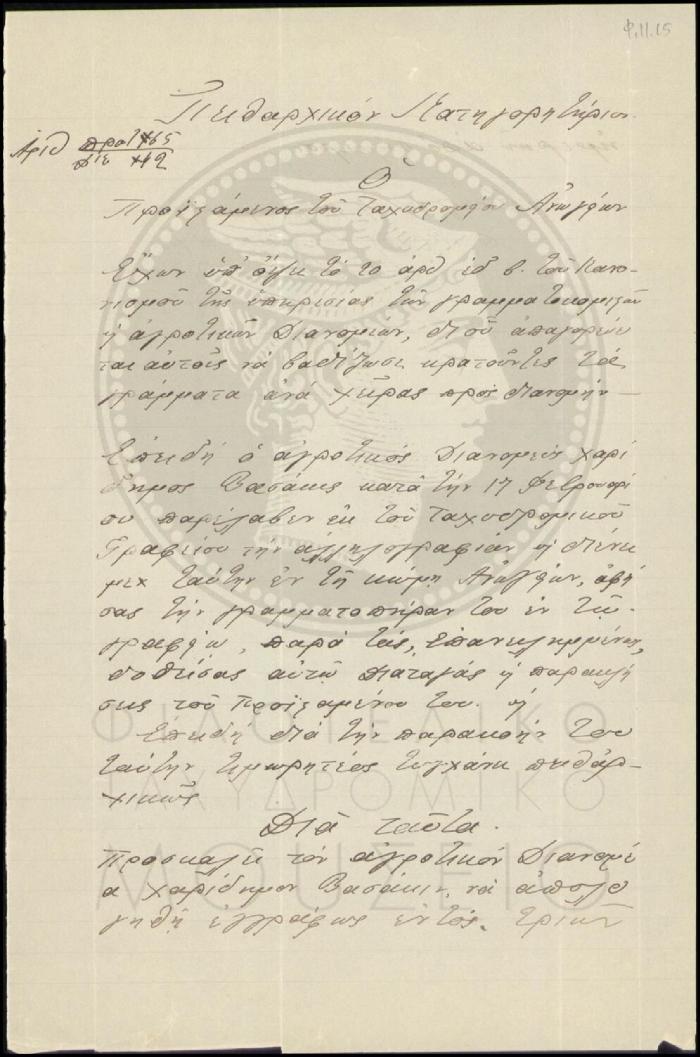 Φ.11.15
Πειθαρχικόν Κατηγορητήριον
Αριθ πρωτ 465
Διε 42
Ο
Προϊστάμενος του Ταχυδρομείου Ανωγείων
Έχων υπ' όψει το άρθ εδ β. του Κανο-
νισμού της υπηρεσίας των γραμματοκομιστών
ή αγροτικών Διανομέων, δι' ού απαγορεύε
ται αυτοίς να βαδίζωσι κρατούντες τας
γράμματα ανά χείρας προς διανομήν —
Επειδή ο αγροτικός Διανομεύς Χαρί
δημος Βασάκις κατά την 17 Φεβρουαρί
ου παρέλαβεν εκ του Ταχυδρομικού
Γραφείου την αλληλογραφίαν ή διένει
μεν ταύτην εν τη κώμη Ανωγείων, αφή
σας την γραμματοπήραν του εν τω
γραφείω, παρά τας, επανειλημμένως,
δοθείσας αυτώ Διαταγάς ή παρακλή
σεις του Προϊσταμένου του. ή
Επειδή διά την παρακοήν του
ταύτην τιμωρητέος τυγχάνει πειθαρ-
χικώς
Διά ταύτα.
Προσκαλεί τον αγροτικόν Διανομέ
α Χαρίδημον Βασάκιν, να απολο
γηθή εγγράφως εντός. τριών
ΦΙΛΟΤΕΛΙΚΟ
ΤΑΧΥΔΡΟΜΙΚΟ
ΜΟΥΣΕΙΟ